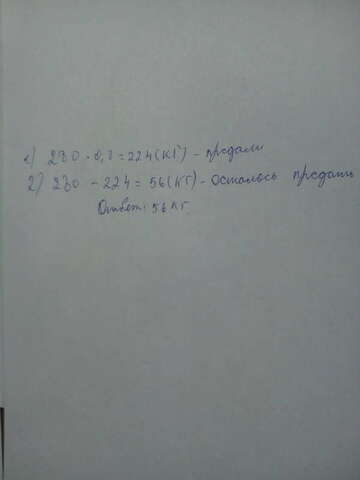 1) 280 · 0,8 = 224 (кг) - продали
2) 280 - 224 = 56 (кг) - осталось продать
Ответ: 56 кг.